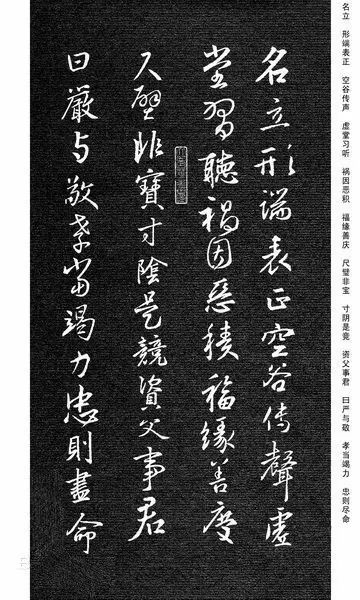 名立形端表正空谷传聲虚
堂習聽禍因惡積福緣善慶
尺璧非寶寸陰是競資父事君
曰嚴与敬孝當竭力忠則盡命
名立 形端表正 空谷传声 虚堂习听 祸因恶积 福缘善庆 尺璧非宝 寸阴是竞 资父事君 曰严与敬 孝当竭力 忠则尽命